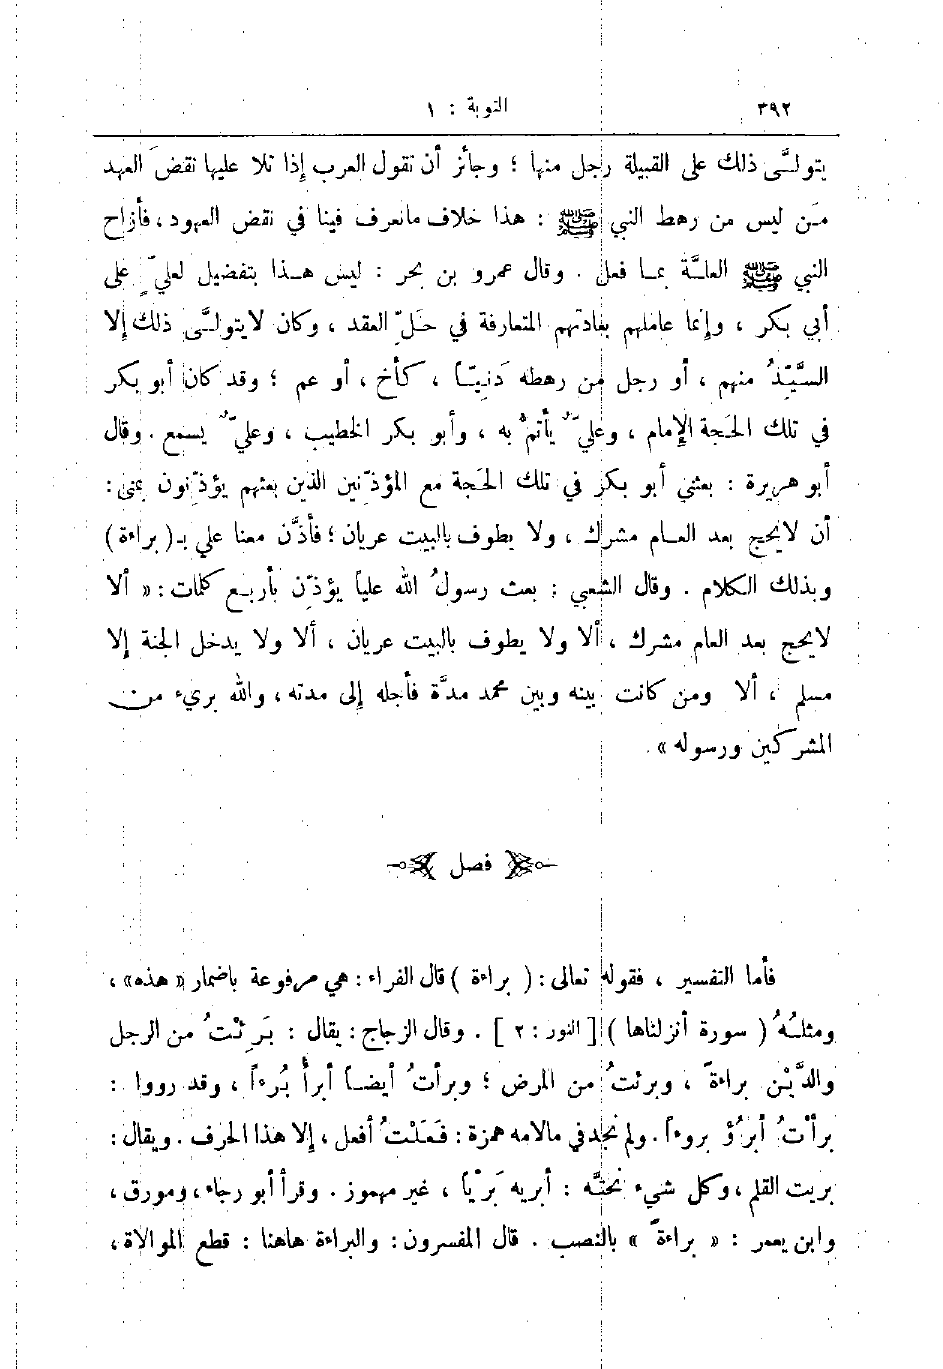 ٣٩٢
التوبة : ١
يتولَّى ذلك على القبيلة رجل منها ؛ وجائز أن تقول العرب إذا تلا عليها نقضَ العهد
مَن ليس من رهط النبي ﷺ : هذا خلاف مانعرف فينا في نقض العهود ، فأزاح
النبي ﷺ العلَّة بما فعل . وقال عمرو بن بحر : ليس هذا بتفضيل لعليّ على
أبي بكر ، وإنما عاملهم بعادتهم المتعارفة في حَلّ العقد ، وكان لايتولَّى ذلك إلا
السَّيِّدُ منهم ، أو رجل من رهطه دَنِيّاً ، كأخ ، أو عم ؛ وقد كان أبو بكر
في تلك الحَجة الإمام ، وعليّ يأتمُّ به ، وأبو بكر الخطيب ، وعليّ يسمع . وقال
أبو هريرة : بعثني أبو بكر في تلك الحَجة مع المؤذّنين الذين بعثهم يؤذّنون بمنى :
أن لايحج بعد العام مشرك ، ولا يطوف بالبيت عريان ؛ فأذَّن معنا علي بـ( براءة )
وبذلك الكلام . وقال الشعبي : بعث رسولُ الله علياً يؤذّن بأربع كلمات : « ألا
لايحج بعد العام مشرك ، ألا ولا يطوف بالبيت عريان ، ألا ولا يدخل الجنة إلا
مسلم ، ألا ومن كانت بينه وبين محمد مدَّة فأجله إلى مدته ، والله بريء من
المشركين ورسوله » .
فصل
فأما التفسير ، فقوله تعالى : ( براءة ) قال الفراء : هي مرفوعة باضمار « هذه » ،
ومثلُهُ ( سورة أنزلناها ) [ النور : ٢ ] . وقال الزجاج : يقال : بَرِئْتُ من الرجل
والدَّيْن براءةً ، وبرئتُ من المرض ؛ وبرأتُ أيضاً أبرأُ بُرءاً ، وقد رووا :
برأْتُ أبرُؤ بروءاً . ولم نجد في مالامه همزة : فَعَلْتُ أفعل ، إلا هذا الحرف . ويقال :
بريت القلم ، وكل شيء نحتَّه : أبريه بَرْياً ، غير مهموز . وقرأ أبو رجاء ، ومورق ،
وابن يعمر : « براءةً » بالنصب . قال المفسرون : والبراءة هاهنا : قطع الموالاة ،